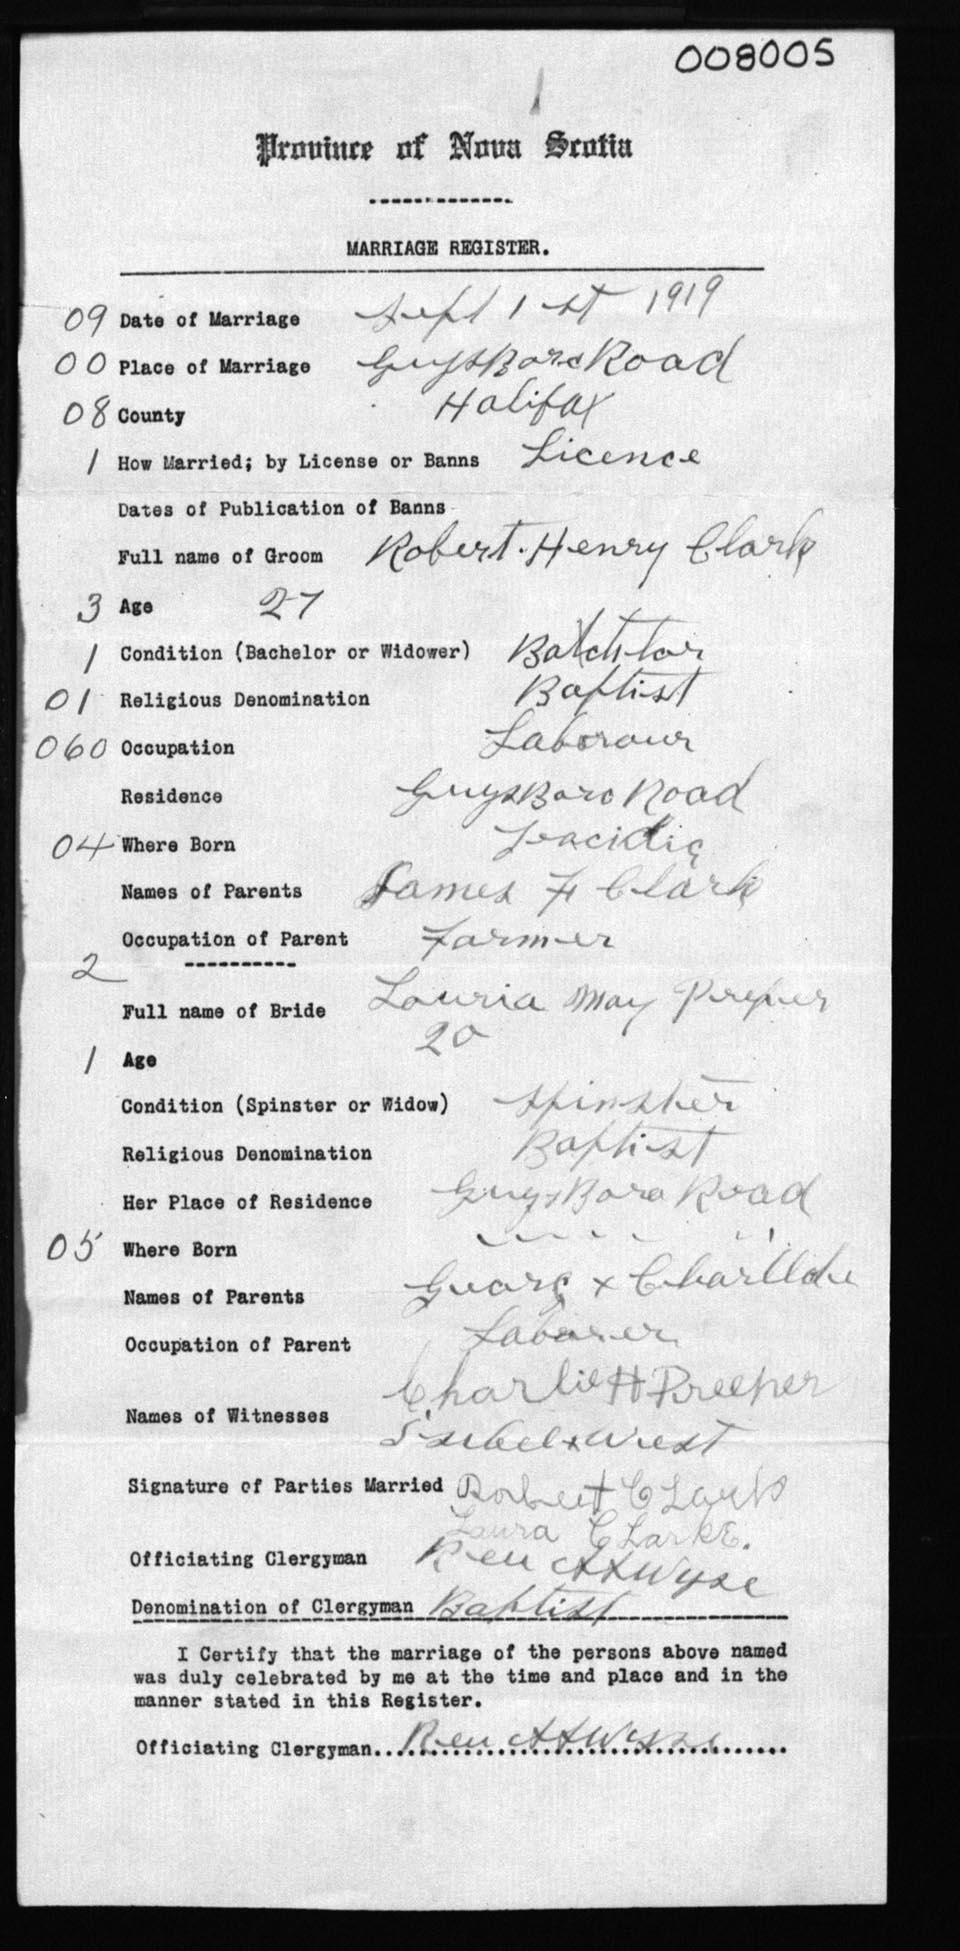 008005
Province of Nova Scotia
MARRIAGE REGISTER.
09 Date of Marriage Sept 1 st 1919
00 Place of Marriage GuysBoro Road
08 County Halifax
1 How Married; by License or Banns Licence
Dates of Publication of Banns
Full name of Groom Robert Henry Clark
3 Age 27
1 Condition (Bachelor or Widower)
01 Religious Denomination Baptist
060 Occupation Labourour
Residence GuysBoro Road
04 Where Born
Names of Parents James H Clark
Occupation of Parent Farmer
2
Full name of Bride Louria May Preper
1 Age 20
Condition (Spinster or Widow) Spinster
Religious Denomination Baptist
Her Place of Residence GuysBoro Road
05 Where Born " "
Names of Parents Georg x
Occupation of Parent Laborer
Names of Witnesses Charlie H Preeper
West
Signature of Parties Married Robert Clark
Laura ClarkE.
Officiating Clergyman Rev A A Wyse
Denomination of Clergyman Baptist
I Certify that the marriage of the persons above named
was duly celebrated by me at the time and place and in the
manner stated in this Register.
Officiating Clergyman Rev A A Wyse